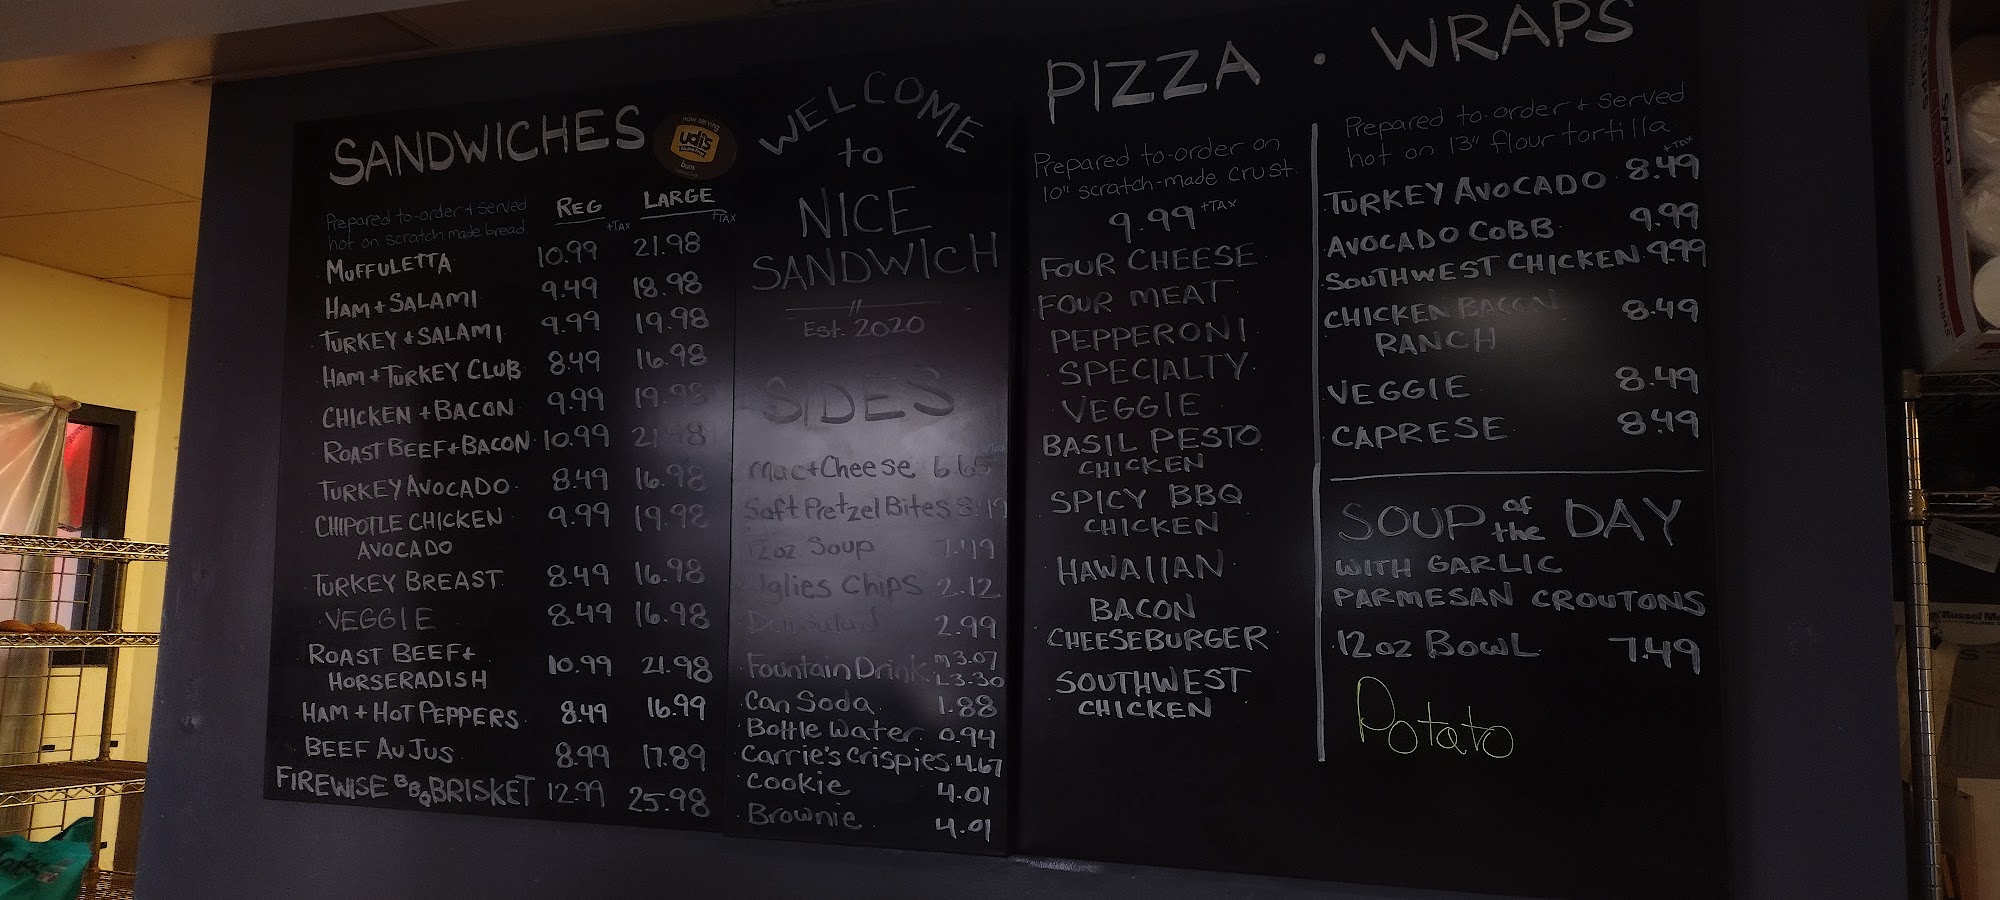 SANDWICHES
now serving
udi's
GLUTEN FREE
buns
Prepared to-order + served
hot on scratch made bread
REG +TAX LARGE +TAX
MUFFULETTA 10.99 21.98
HAM + SALAMI 9.49 18.98
TURKEY + SALAMI 9.99 19.98
HAM + TURKEY CLUB 8.49 16.98
CHICKEN + BACON 9.99 19.98
ROAST BEEF + BACON 10.99 21.98
TURKEY AVOCADO 8.49 16.98
CHIPOTLE CHICKEN 9.99 19.98
AVOCADO
TURKEY BREAST 8.49 16.98
VEGGIE 8.49 16.98
ROAST BEEF +
HORSERADISH 10.99 21.98
HAM + HOT PEPPERS 8.49 16.99
BEEF AU JUS 8.99 17.89
FIREWISE BBQ BRISKET 12.99 25.98
WELCOME
to
NICE
SANDWICH
Est. 2020
SIDES
Mac+Cheese 6.65
Soft Pretzel Bites 8.49
12oz. Soup 7.49
Uglies Chips 2.12
2.99
Fountain Drink M 3.07
L 3.30
Can Soda 1.88
Bottle Water 0.94
Carrie's Crispies 4.67
Cookie 4.01
Brownie 4.01
PIZZA · WRAPS
Prepared to-order on
10" scratch-made crust
9.99 +TAX
FOUR CHEESE
FOUR MEAT
PEPPERONI
SPECIALTY
VEGGIE
BASIL PESTO
CHICKEN
SPICY BBQ
CHICKEN
HAWAIIAN
BACON
CHEESEBURGER
SOUTHWEST
CHICKEN
Prepared to-order + served
hot on 13" flour tortilla
+TAX
TURKEY AVOCADO 8.49
AVOCADO COBB 9.99
SOUTHWEST CHICKEN 9.99
CHICKEN BACON 8.49
RANCH
VEGGIE 8.49
CAPRESE 8.49
SOUP of the DAY
WITH GARLIC
PARMESAN CROUTONS
12oz BOWL 7.49
Potato
Sysco